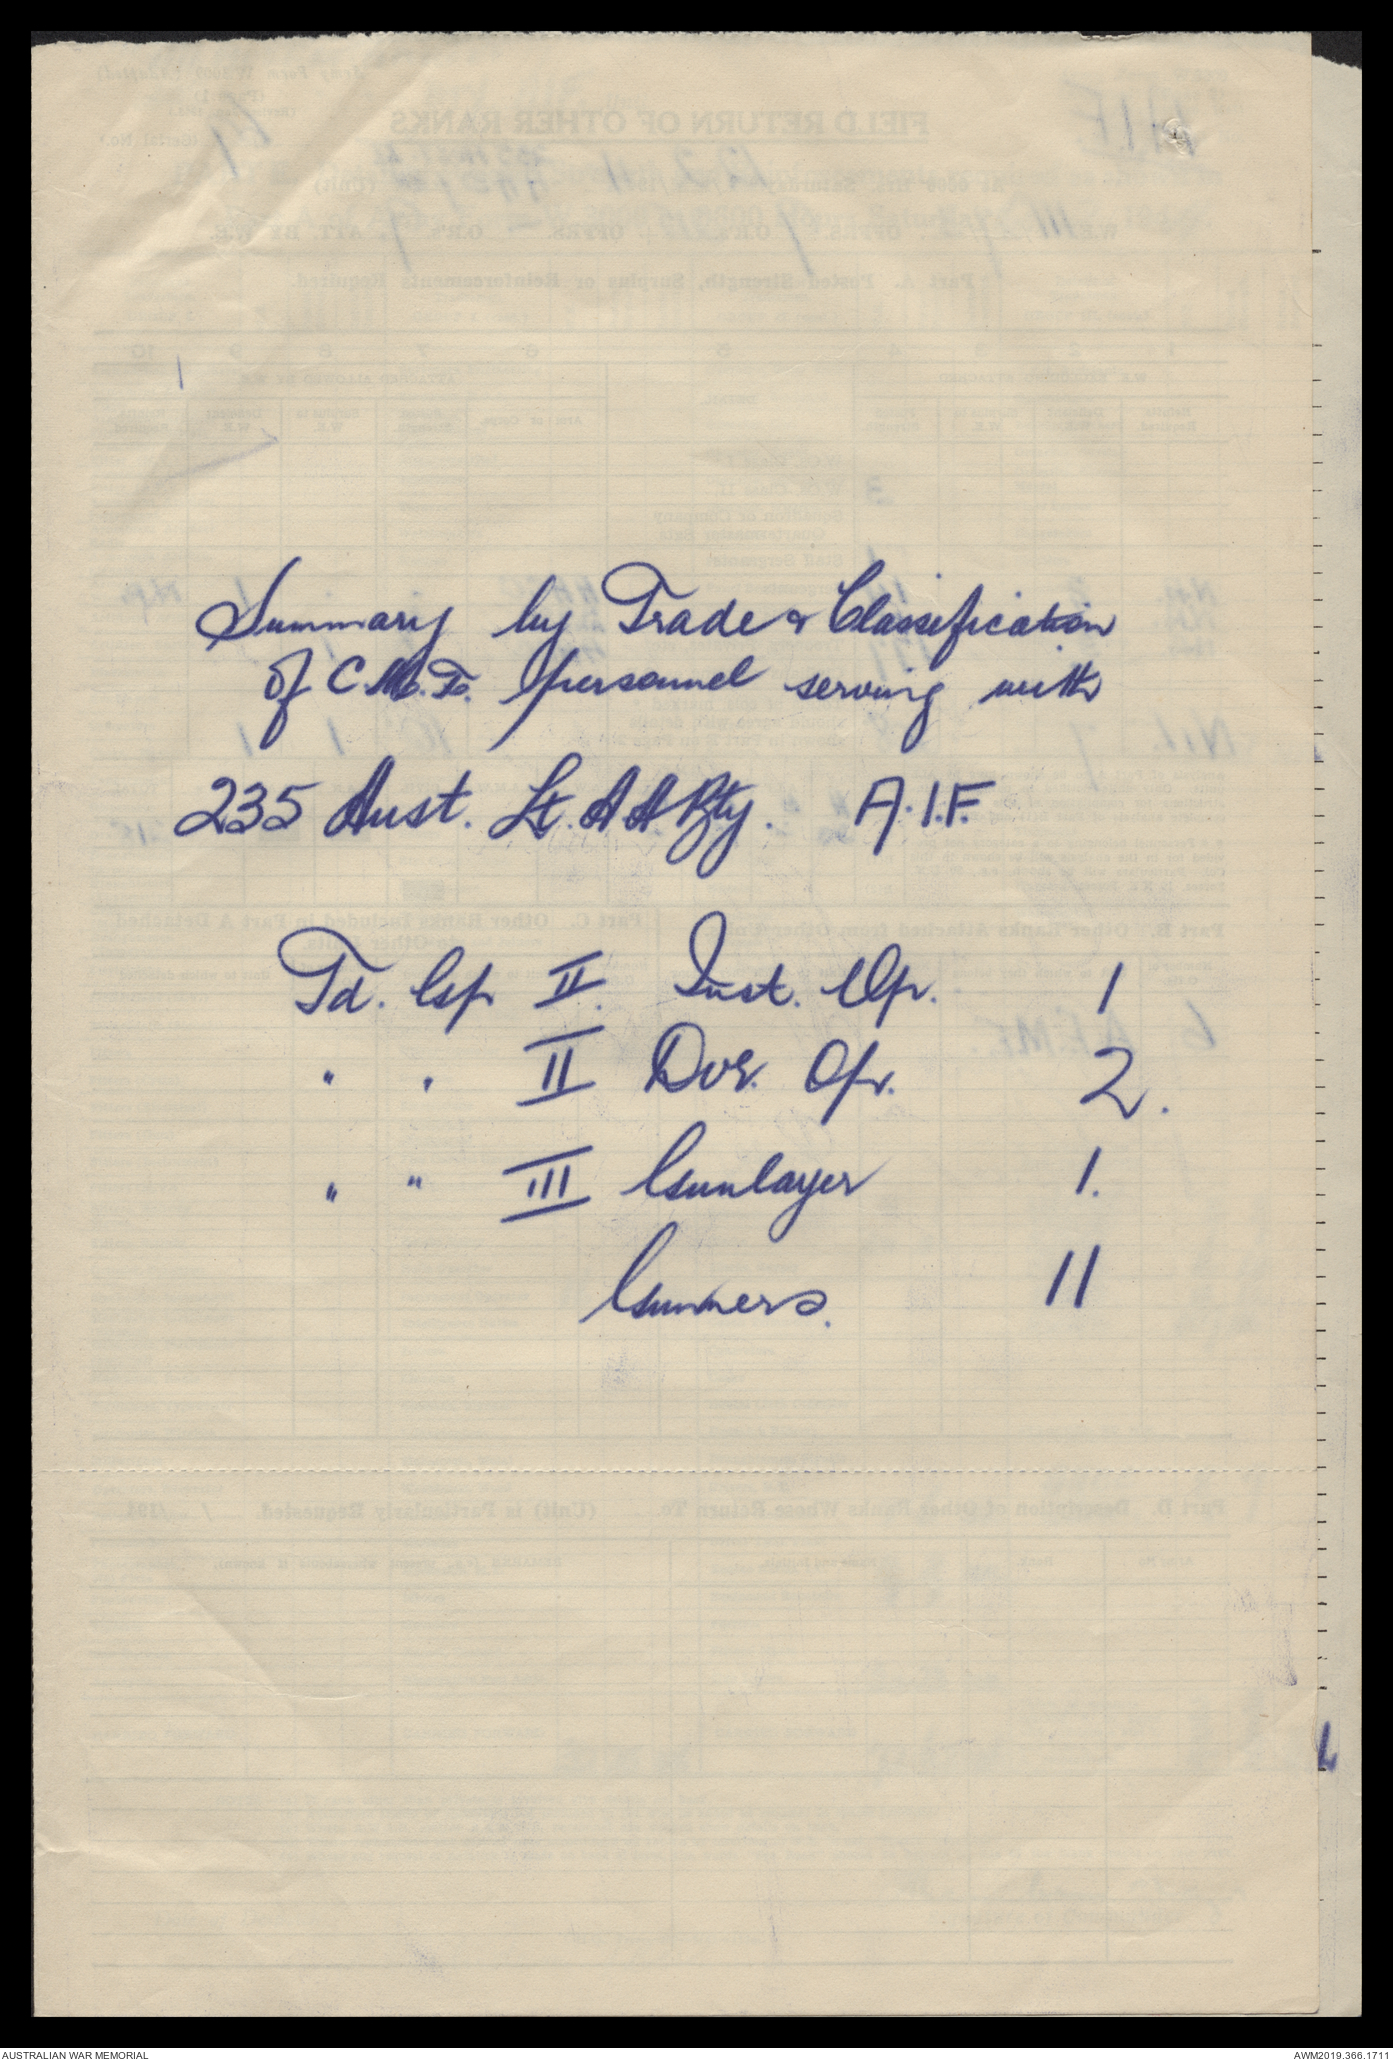 Summary by Trade & Classification
of C.M.F. personnel serving with
235 Aust. Lt. A A Bty. A.I.F.
Td. Gp II. Inst. Op. 1
" " II Dvr. Op. 2.
" " III Gunlayer 1.
Gunners. 11
AUSTRALIAN WAR MEMORIAL
AWM2019.366.1711